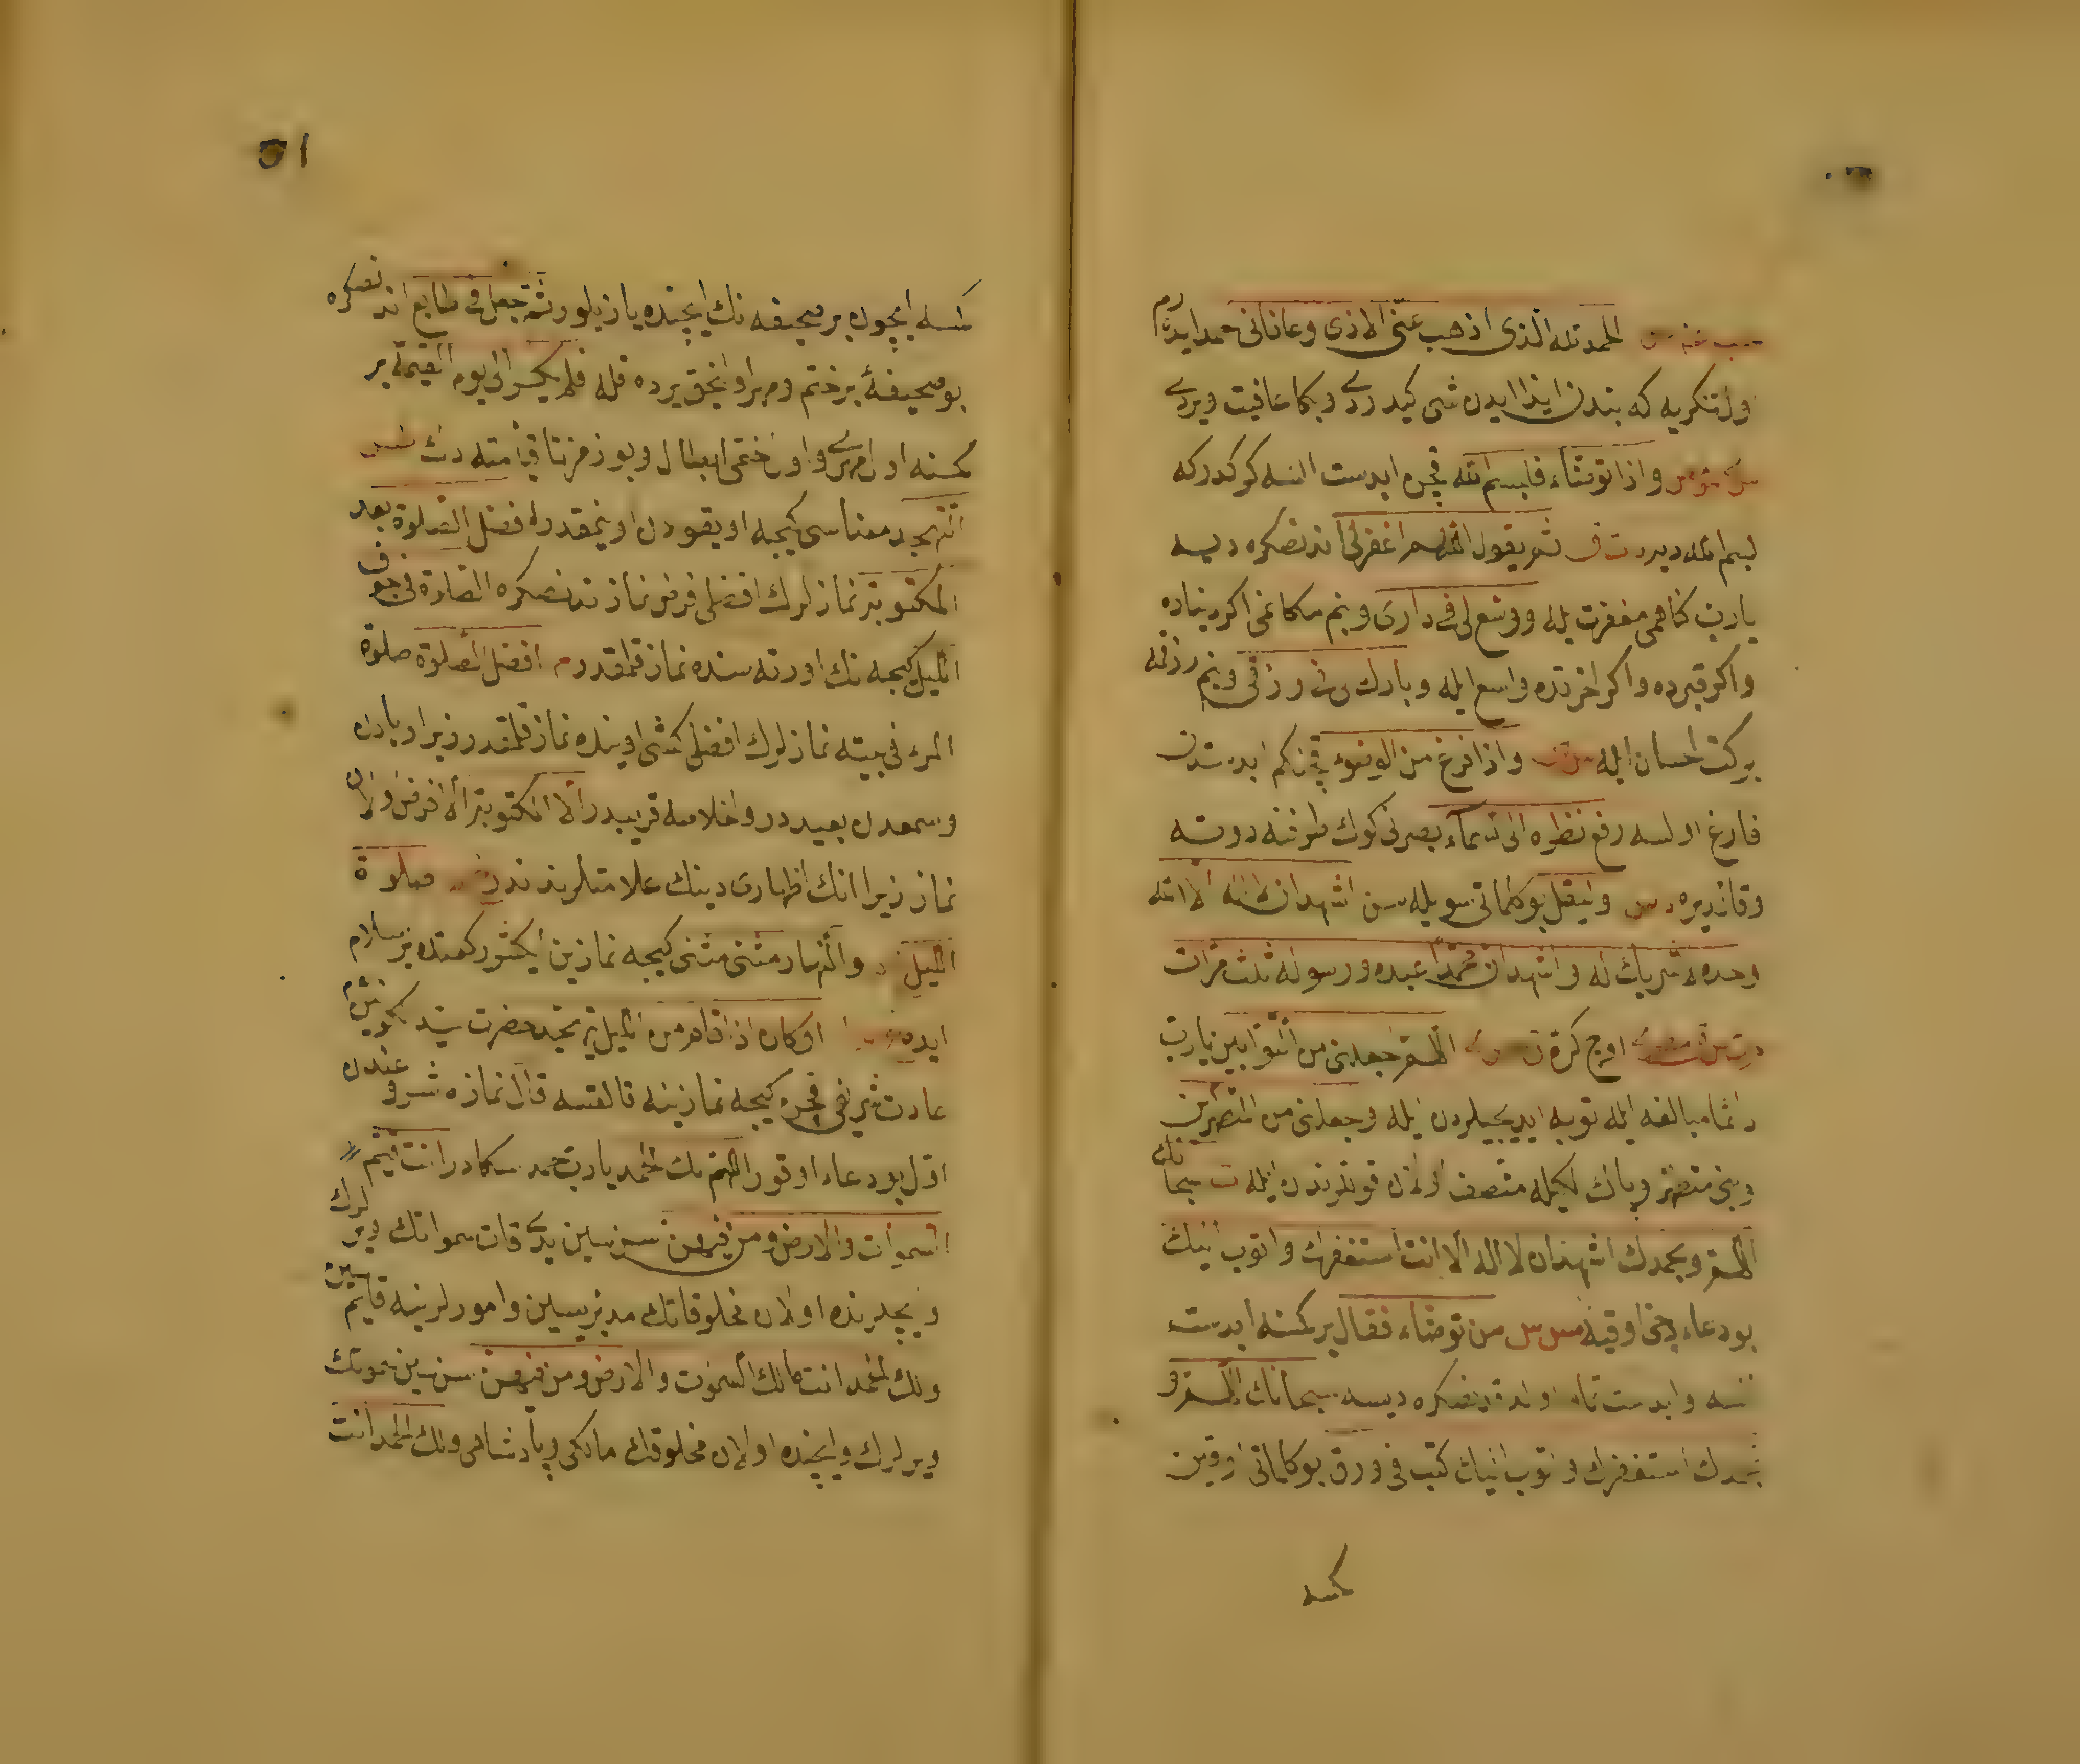 الحمد لله الذى اذهب عنى الاذى وعافانى حمد ايدرم
اول تنكريه كه بندن ايذا ايدن شى كيدردى وبكا عافيت ويردى
واذا توضاء فليسم الله قچن ابدست السه كركدركه
بسم الله ديه ثم يقول اللهم اغفرلى اندنصكره ديسه
يارب كناهمى مغفرت ايله ووسع لى فى دارى وبنم مكانمى اكر دنياده
واكر قبرده واكر اخرتده واسع ايله وبارك لى فى رزقى وبنم رزقمه
بركت احسان ايله واذا فرغ من الوضوء قچنكم ابدستدن
فارغ اولسه رفع نظره الى السماء بصرنى كوك طرفنه دوته
وقالديره وليقل بو كلماتى سويله سن اشهد ان لا اله الا الله
وحده لا شريك له واشهد ان محمدا عبده ورسوله ثلث مرات
اوچ كرة اللهم اجعلنى من التوابين يارب
دائما مبالغه ايله توبه ايديجيلردن ايله واجعلنى من المتطهرين
وبنى متطهر وپاك ايله متصف اولان قوللرندن ايله سبحانك
اللهم وبحمدك اشهد ان لا اله الا انت استغفرك واتوب اليك
بو دعاء دخى اوقيه من توضاء فقال بر كمسنه ابدست
السه وابدست تمام اولدقدنصكره ديسه سبحانك اللهم و
بحمدك استغفرك واتوب اليك كتب فى ورق بو كلماتى اوقوين
كمسه
51
كمسه ايچون بر صحيفه نك ايچنده يازيلور ثم جعل فى طابع اندنصكره
بو صحيفهٔ بر ختم ومهر اولنجق يرده قله فلم يكسر الى يوم القيمة بر
كمسنه اول مهرى واول ختمى ابطال وبوزمز تا قيامته دك
التهجد معناسى كيجه اويقودن اوينمقدر افضل الصلوة بعد
المكتوبة نمازلرك افضلى فرض نمازندنصكره الصلوة فى جوف
الليل كيجه نك اورته سنده نماز قلمقدر م افضل الصلوة صلوة
المرء فى بيته نمازلرك افضلى كشى اوينده نماز قلمقدر زيرا ريادن
وسمعه دن بعيددر واخلاصه قريبدر الا المكتوبة الا فرض اولان
نماز زيرا انك اظهارى دينك علامتلرندندر صلوة
الليل والنهار مثنى مثنى كيجه نمازين ايكيشر ركعتده بر سلام
ايده وكان اذا قام من الليل يتهجد حضرت سيد كونينك
عادت شريفى قچن كيجه نمازينه قالقسه قال نمازه شروعندن
اول بو دعاء اوقور اللهم لك الحمد يارب حمد سكادر انت قيم
السموات والارض ومن فيهن سن سين يدى قات سمواتك ويرلرك
وايچلرنده اولان مخلوقاتك مدبرىسين وامورلرينه قائمسين
ولك الحمد انت مالك السموت والارض ومن فيهن سن سين سمواتك
ويرلرك وايچنده اولان مخلوقك مالكى وپادشاهى ولك الحمد انت